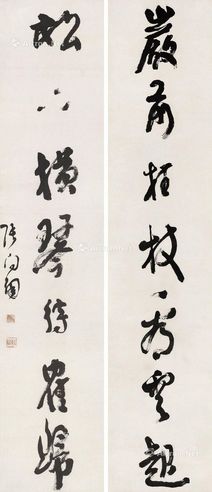 巖前拄杖看雲起
松下橫琴待隺歸
張問陶